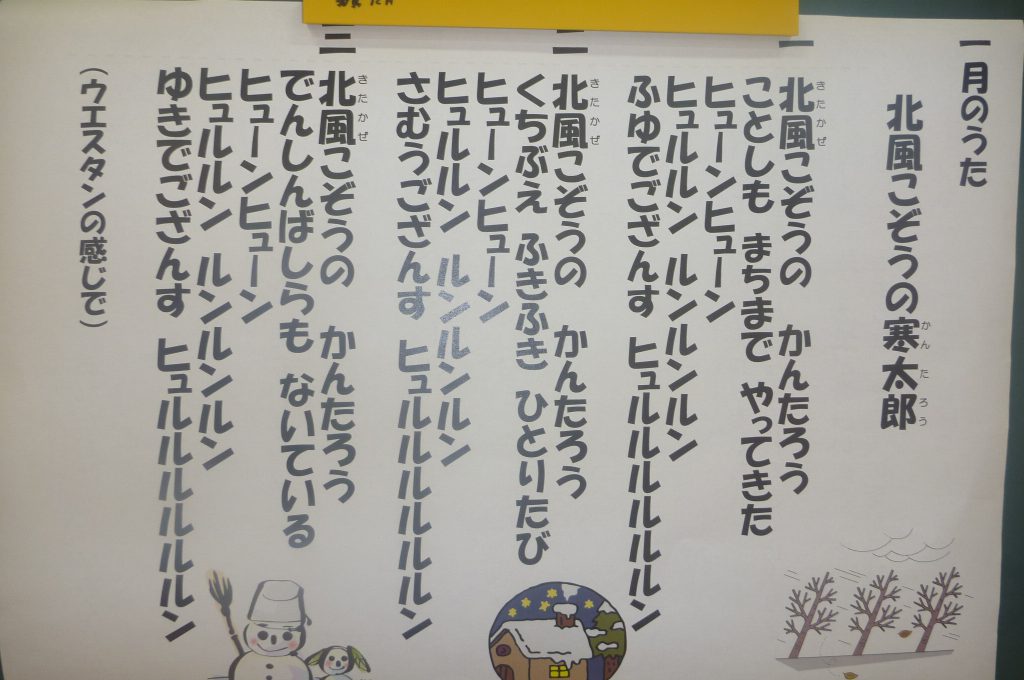 一月のうた
かんたろう
北風こぞうの寒太郎
きたかぜ
一 北風こぞうの かんたろう
ことしも まちまで やってきた
ヒューンヒューン
ヒュルルン ルンルンルン
ふゆでござんす ヒュルルルルルルン
きたかぜ
二 北風こぞうの かんたろう
くちぶえ ふきふき ひとりたび
ヒューンヒューン
ヒュルルン ルンルンルン
さむうござんす ヒュルルルルルルン
きたかぜ
三 北風こぞうの かんたろう
でんしんばしらも ないている
ヒューンヒューン
ヒュルルン ルンルンルン
ゆきでござんす ヒュルルルルルルン
(ウエスタンの感じで)